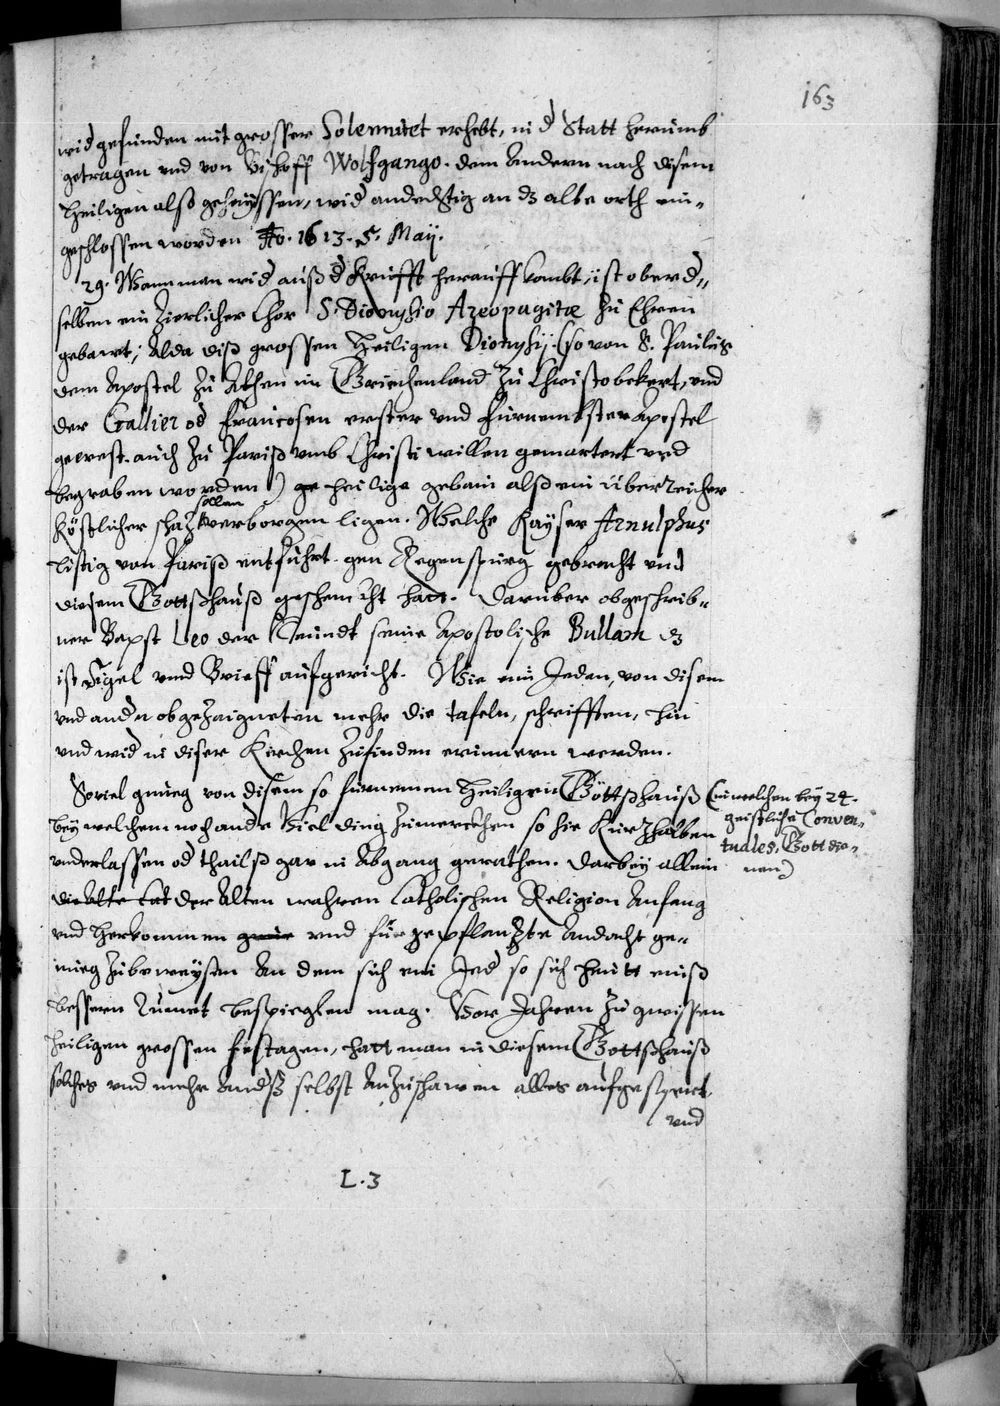 163
wid gefunden mit grosser Solennitet erhebt, in d Statt herumb
getragen vnd von Bischoff Wolfgango. dem Andern nach disem
Heiligen alß geheyssen, wid andechtig an dz alte orth ein-
geschlossen worden Ao. 1613. 5. Maij.
29. Wann man wid auß d Krufft herauff kombt, ist ober d-
selben ein zierlicher Chor S. Dionysio Areopagitæ zu Ehren
gebawt, Alda diß grossen Heiligen Dionysij (so von S. Paulus
dem Apostel zu Athen in Griechenland zu Christo bekert, vnd
der Gallier od Francosen erster vnd fürnembster Apostel
gewest. auch zu Pariß vmb Christi willen gemartert vnd
begraben worden) ge heilige gebain alß ein überreicher
köstlicher schaz sollen verborgen ligen. Welche Kayser Arnulphus
listig von Pariß entführt. gen Regenspurg gebracht vnd
diesem Gottßhauß geschenckht hatt. Darüber obgeschrib-
ner Bapst Leo der Neundt seine Apostolische Bullam dz
ist Sigel vnnd Brieff aufgericht. Wie ein Jeden, von disem
vnd andn obgezaigneten mehr die tafeln, schrifften, hin
vnd wid in diser Kirchen zufinden erinnern werden.
Soviel gnueg von disem so fürnemen Heiligen Gottßhauß (in welchem bey 24.
geistliche Conven-
tuales, Gott die-
nen)
bey welchem noch andr Viel ding zumerckhen so hie kürz halben
vnderlassen od thailß gar in Abgang gerathen. Darbey allein
die Alte Cat der Alten wahren Catholischen Religion Anfang
vnd Herkommen vnd fürgepflanzte Andacht ge-
nueg zubeweysen An dem sich ein Jed so sich heutt eniß
bessern bespieglen mag. Vor Jahren zu gwissen
heiligen grossen festagen, hatt man in diesem Gottßhauß
solches vnd mehr Andß selbst Anzuschawen alles aufgesperrt.
vnd
L. 3